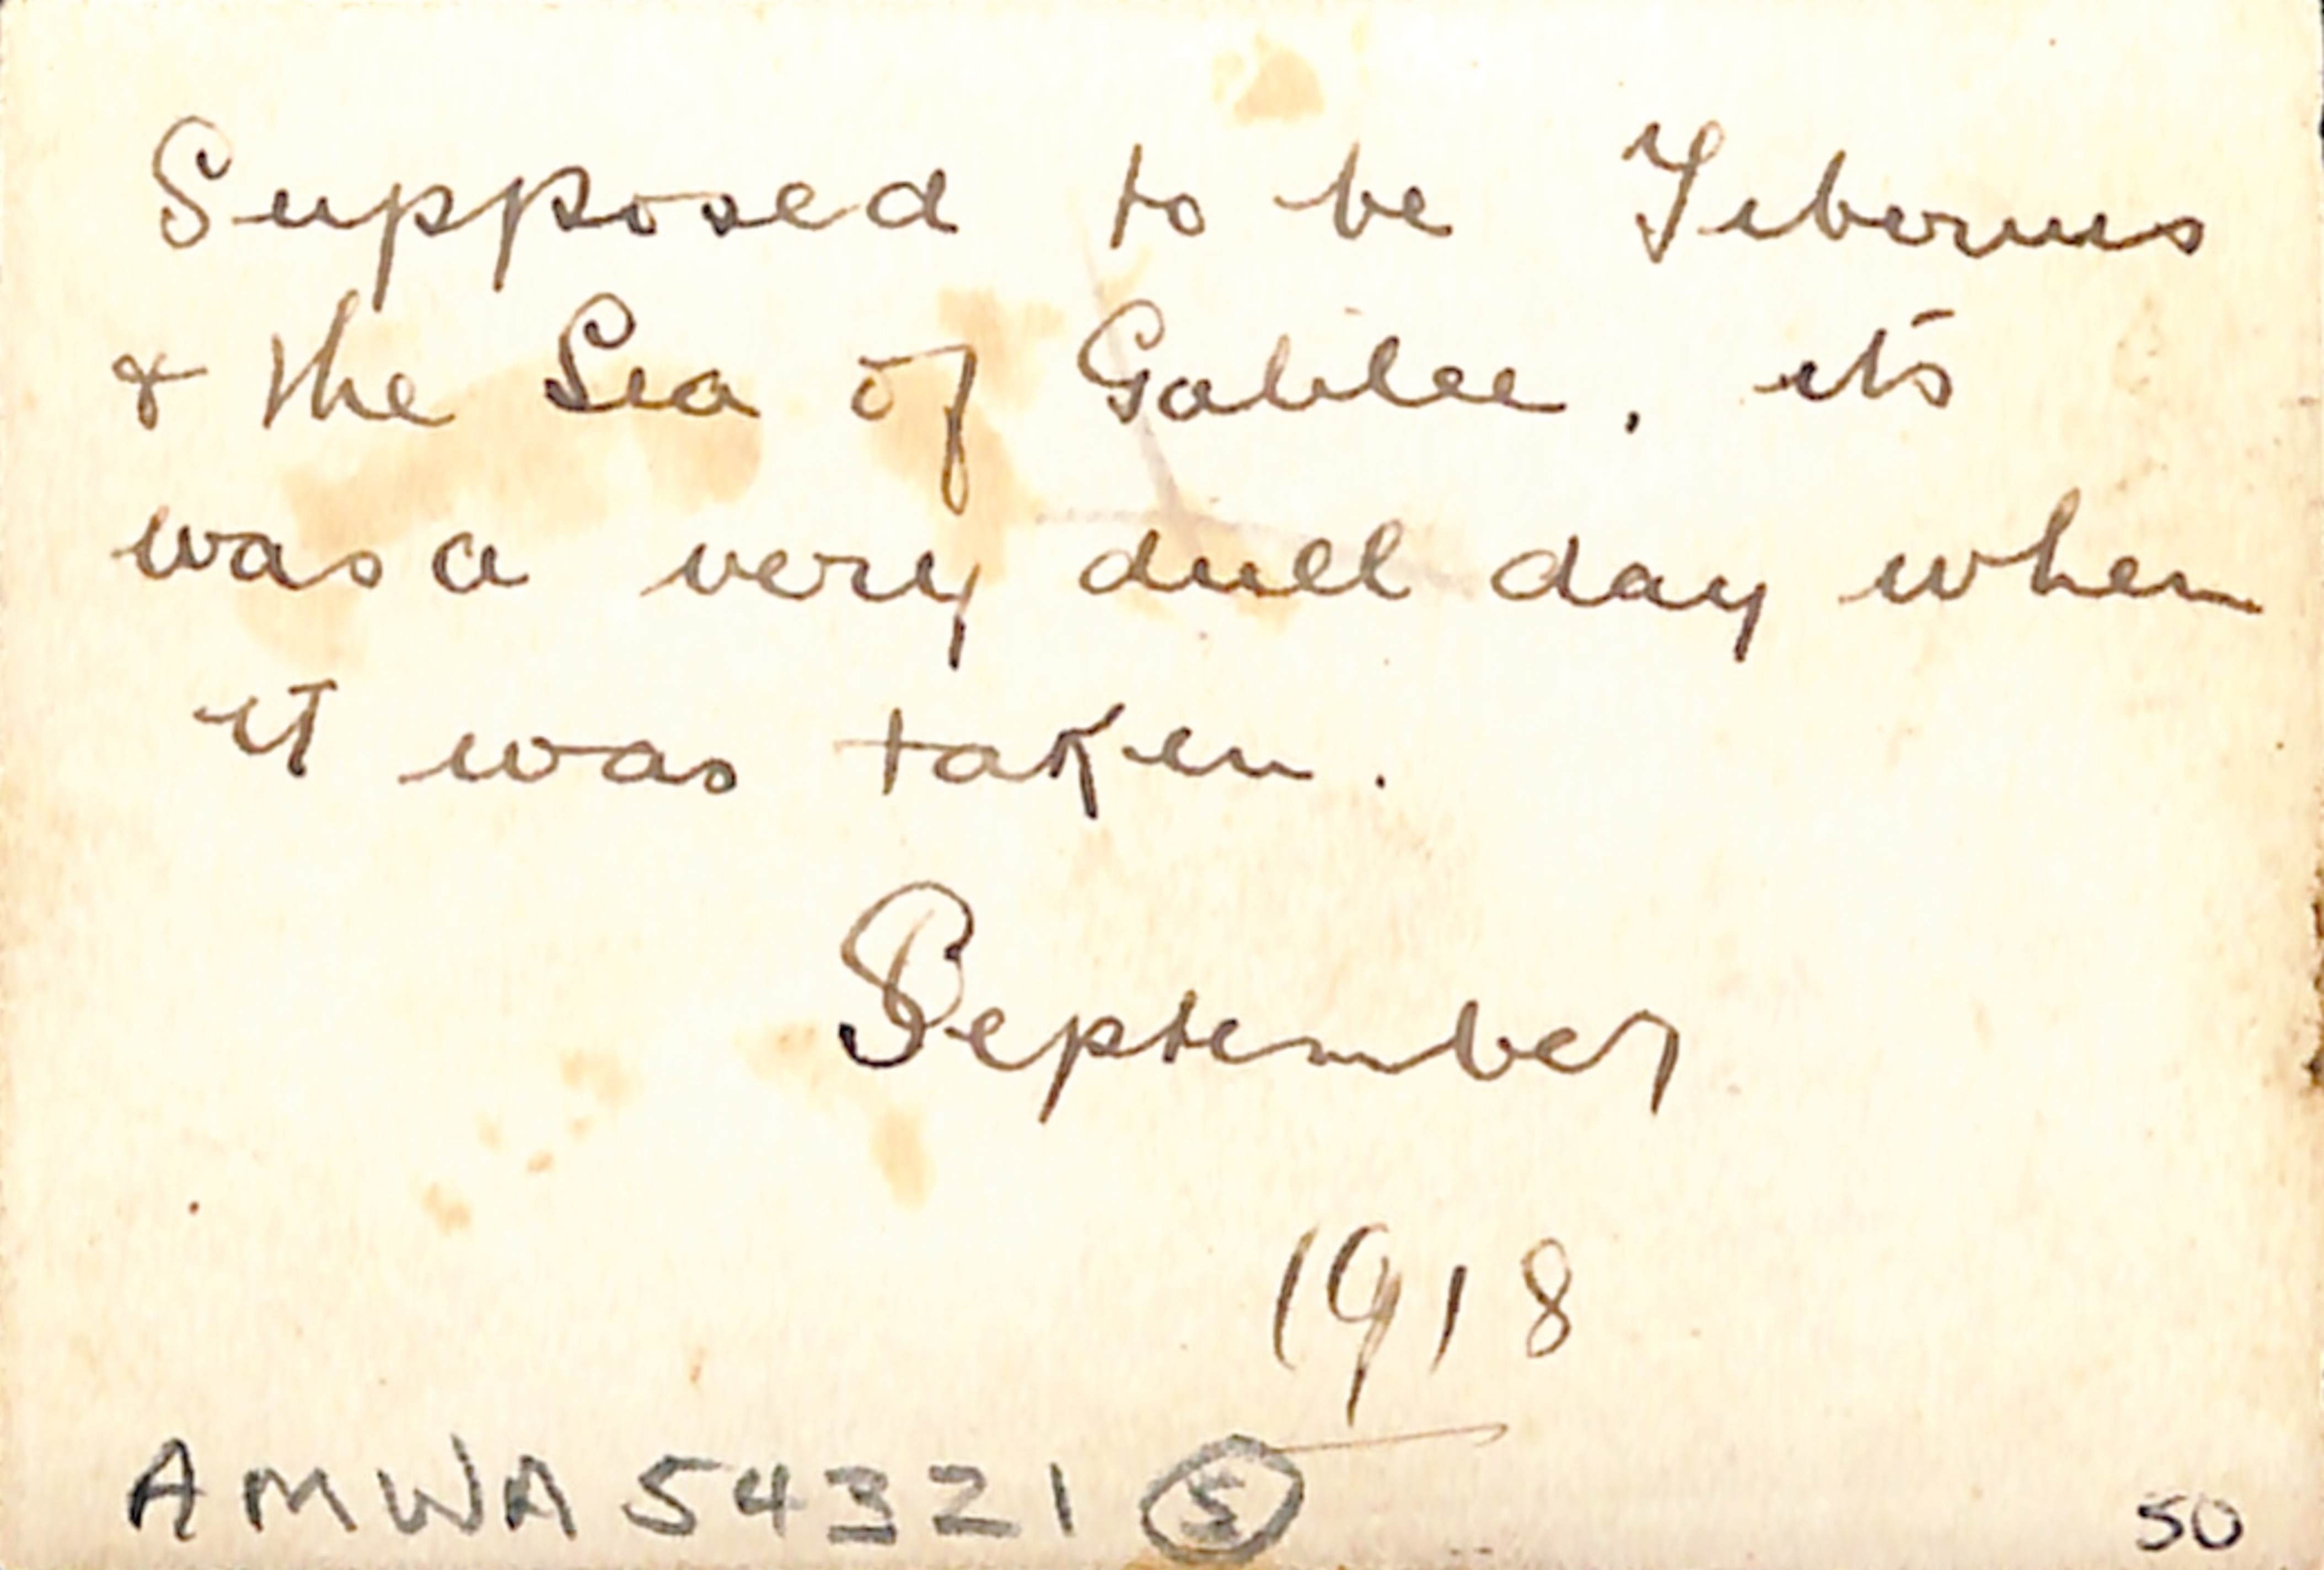 Supposed to be Tiberius
& the Sea of Galilee, its
was a very dull day when
it was taken.
September
1918
AMWA 54321 5
50